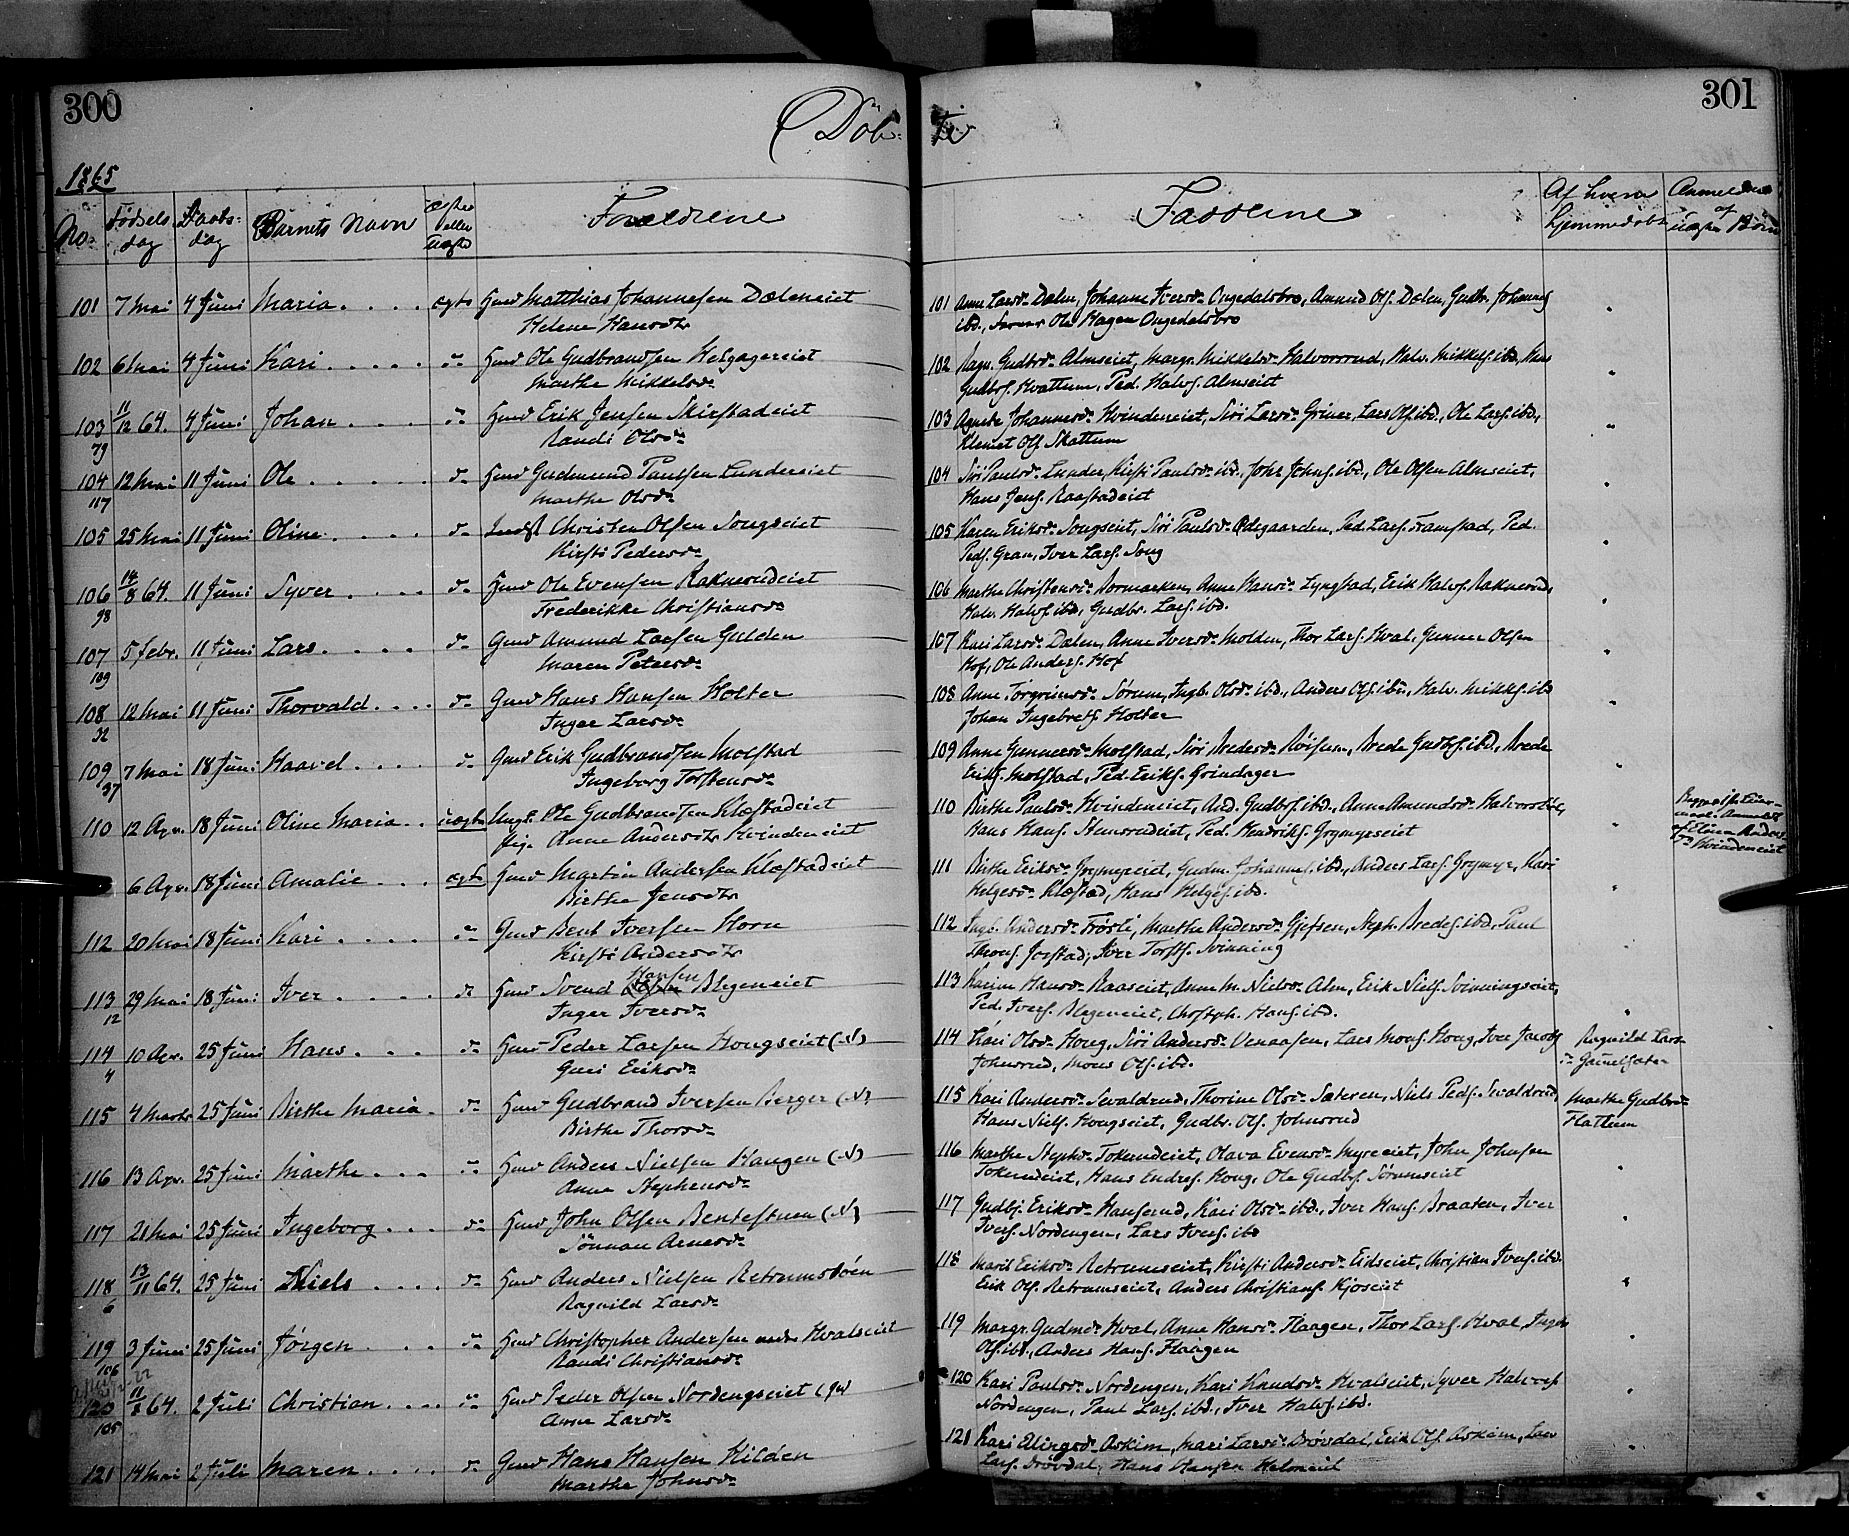 300
301
Døb-
te
1865
No.
Fødsels
dag
Daabs-
dag
Barnets Navn
ægte
eller
uægte
Forældrene
Fadderne
Af hvem
hjemmedøbt
Anmeldelse
af
uægte Børn
101 7 Mai 4 Juni Maria. . . . ægte Huusm Matthias Johannesen Dæleneiet
Helene Hansdtr
102 6 Mai 4 Juni Kari . . . . . do Huusm Ole Gudbrandsen Helgagereiet
Marthe Mikkelsdr
103 11/12 64. 4 Juni Johan . . . . do Huusm Erik Jensen Skirstadeiet
79 Randi Olsdr
104 12 Mai 11 Juni Ole . . . . . . do Huusm Gudmund Paulsen Lundereiet
117 Marthe Olsdr
105 25 Mai 11 Juni Oline. . . . . do Inds Christen Olsen Songseiet
Kirsti Pedersdr
106 14/8 64. 11 Juni Syver . . . . do Huusm Ole Evensen Raknerudeiet
98 Frederikke Christiansdr
107 5 Febr. 11 Juni Lars. . . . . do Gaardm Amund Larsen Gulden
109 Maren Petersdr
108 12 Mai 11 Juni Thorvald . . . . do Gaardm Hans Hansen Holter
32 Inger Larsdr
109 7 Mai 18 Juni Haavel . . . . do Gaardm Erik Gudbrandsen Molstad
37 Ingeborg Torstensdr
110 12 Apr. 18 Juni Oline Maria . . uægte Ungk. Ole Gudbrandsen Klæstadeiet
Pig. Anne Andersdtr Hvindeneiet
6 Apr. 18 Juni Amalie . . . ægte Huusm Martin Andersen Klæstadeiet
Birthe Jensdtr
112 20 Mai 18 Juni Kari . . . . do Gaardm Bent Iversen Horn
Kirsti Andersdtr
Hansen
113 29 Mai 18 Juni Iver . . . . do Huusm Svend Blegeneiet
12 Inger Iversdr
114 10 Apr. 25 Juni Hans . . . do Huusm Peder Larsen Hougseiet (N)
4 Guri Eriksdr
115 4 Marts 25 Juni Birthe Maria . do Huusm Gudbrand Iversen Berger (N)
Birthe Thorsdr
116 13 Apr. 25 Juni Marthe . . . do Huusm Anders Nielsen Haugen (N)
Anne Stephensdr
117 21 Mai 25 Juni Ingeborg . . . do Huusm John Olsen Bentestuen (N)
Sønnau Arnesdr
118 13/11 64. 25 Juni Niels . . . . do Huusm Anders Nielsen Retrumsdøen
6 Ragnild Larsdr
119 3 Juni 25 Juni Jørgen . . . . do Huusm Christopher Andersen Hvalseiet
106 Randi Christiansdr
120 11/8 64. 2 Juli Christian . . . . do Huusm Peder Olsen Nordengseiet
105 Anne Larsdr
121 14 Mai 2 Juli Maren . . . . do Gaardm Hans Hansen Hilden
Marthe Johnsdr
101 Anne Larsd. Dælen, Johanne Iversd. Ongedalsbro, Amund Ols. Dælen, Gudbr. Johannes
ibd., Ole Hagen Ongedalsbro
102 Ragn. Gudbrd. Almseiet, Margr. Mikkelsd. Halvorsrud, Halv. Mikkels. ibd, Hans
Gudbrs. Hvattum, Ped. Halvs. Almseiet
103 Agnete Johannesd. Hvindeneiet, Siri Larsd. Griner, Lars Ols. ibd., Ole Lars. ibd.,
Klemet Ols. Skattum
104 Siri Paulsd. Lunder, Kirsti Paulsd. ibd., John Johns. ibd., Ole Olsen Almseiet,
Hans Jens. Raastadeiet
105 Karen Eriksd. Songseiet, Siri Paulsd. Ødegaarden, Ped. Lars. Framstad, Ped.
Peds. Gran, Iver Lars. Song
106 Marthe Christensd. Dormarken, Anne Hansd. Lyngstad, Erik Halvs. Raknerud,
Halv. Halvs. ibd., Gudbr. Lars. ibd.
107 Kari Larsd. Dælen, Anne Iversd. Molden, Thor Lars. Hval, Gunner Olsen
Hof, Ole Anders. Hof
108 Anne Torgrimsd. Sørum, Ingb. Olsd. ibd., Anders Ols. ibd., Halv. Mikkels. ibd
Johan Ingebrets. Holter
109 Anne Gunnersd. Molstad, Siri Bredesd. Røisum, Brede Gudbrs. ibd, Brede
Eriks. Molstad, Ped. Eriks. Grindager
110 Birthe Paulsd. Hvindeneiet, And. Gudbrs. ibd., Anne Amundsd. Halvorsbøle,
Hans Hans. Stensrudeiet, Ped. Hendriks. Grymyrseiet
Anmeldt
af Elina Anders
dr Hvindeneiet
111 Birthe Eriksd. Grymyreiet, Gudm. Johannes. ibd., Anders Lars. Grymyr, Kari
Helgesd. Klæstad, Hans Helges. ibd.
112 Ingb. Andersd. Trøsli, Marthe Andersd. Gjefsen, Steph. Bredes. ibd, Paul
Thors. Jorstad, Iver Torsts. Svinning
113 Karen Hansd. Raaseiet, Anne M. Nielsd. Alm, Erik Niels. Svinningseiet,
Ped. Ivers. Blegeneiet, Chrstph. Hans. ibd.
114 Kari Olsd. Houg, Siri Andersd. Venaasen, Lars Mons. Houg, Iver Jacobs
Johnsrud, Mons Ols. ibd.
Ragnild Lars-
dr Gamelsæter
115 Kari Andersd. Sevaldrud, Thorine Olsd. Sæteren, Niels Peds. Sevaldrud,
Hans Niels. Hougseiet, Gudbr. Ols. Johnsrud
Marthe Gudbrd.
Flattum
116 Marthe Stephd. Tokerudeiet, Olava Evensd. Myreeiet, John Johnsen
Tokerudeiet, Hans Endres. Houg, Ole Gudbrs. Sørumseiet
117 Gudbj. Eriksd. Hanserud, Kari Olsd. ibd., Iver Hans. Braaten, Iver
Ivers. Nordengen, Lars Ivers. ibd
118 Marit Eriksd. Retrumseiet, Kirsti Andersd. Eidseiet, Christian Ivers. ibd.
Erik Ols. Retrumseiet, Anders Christians. Kjoseiet
119 Margr. Gudmd. Hval, Anne Hansd. Flaagen, Thor Lars. Hval, Ingbr
Ols. ibd., Anders Hans. Flaagen
120 Kari Paulsd. Nordengen, Kari Knudsd. Hvalseiet, Syver Halvors
Nordengen, Paul Lars. ibd., Iver Halvs. ibd.
121 Kari Elingsd. Askim, Mari Larsd. Drøvdal, Erik Ols. Askim, Lars
Lars. Drøvdal, Hans Hansen Helmeiet